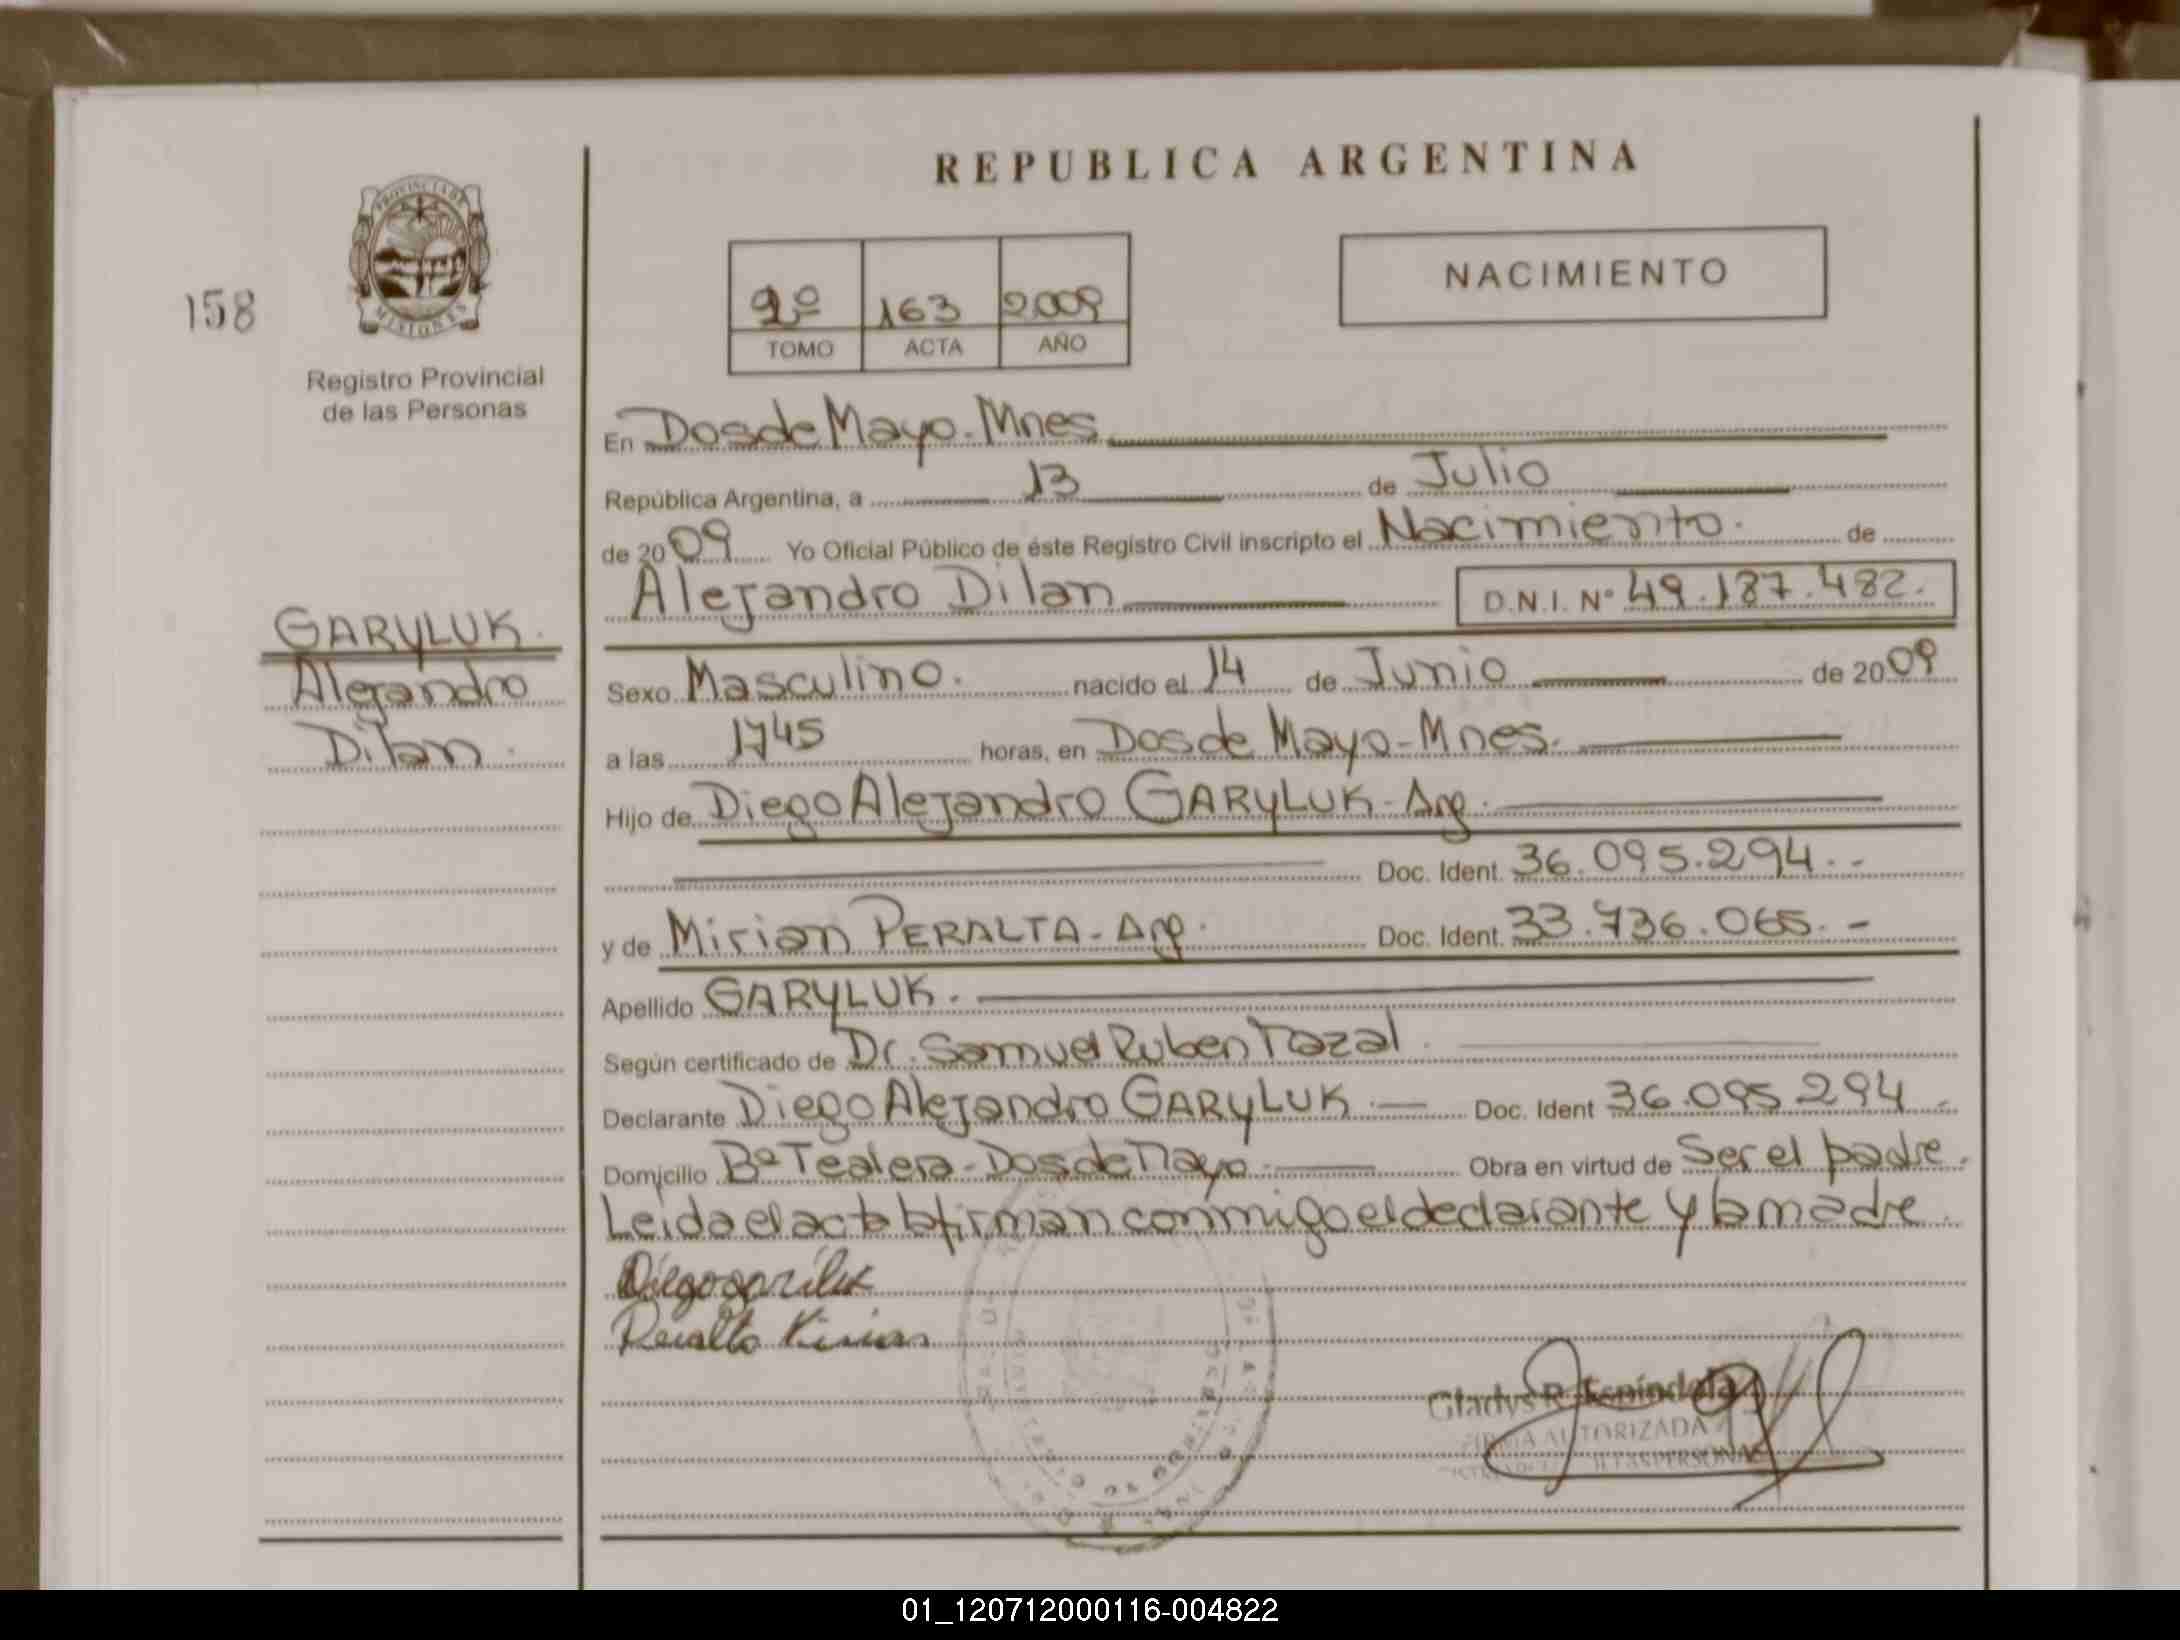 REPUBLICA ARGENTINA
PROVINCIA DE
MISIONES
158
Registro Provincial
de las Personas
2º 163 2009
TOMO ACTA AÑO
NACIMIENTO
En Dos de Mayo - Mnes
República Argentina, a 13 de Julio
de 2009 Yo Oficial Público de éste Registro Civil inscripto el Nacimiento. de
Alejandro Dilan D.N.I. Nº 49.187.482.
GARYLUK.
Alejandro
Dilan.
Sexo Masculino. nacido el 14 de Junio de 2009
a las 1745 horas, en Dos de Mayo - Mnes.
Hijo de Diego Alejandro GARYLUK - Arg.
Doc. Ident. 36.095.294. -
y de Mirian PERALTA - Arg. Doc. Ident. 33.736.065. -
Apellido GARYLUK.
Según certificado de Dr. Samuel Ruben Nazal.
Declarante Diego Alejandro GARYLUK. Doc. Ident 36.095.294 -
Domicilio Bº Tealera - Dos de Mayo. Obra en virtud de Ser el padre.
Leida el acta la firman conmigo el declarante y la madre.
Diego
Peralta
Gladys R. Espíndola
FIRMA AUTORIZADA
PERSONAS
01_120712000116-004822